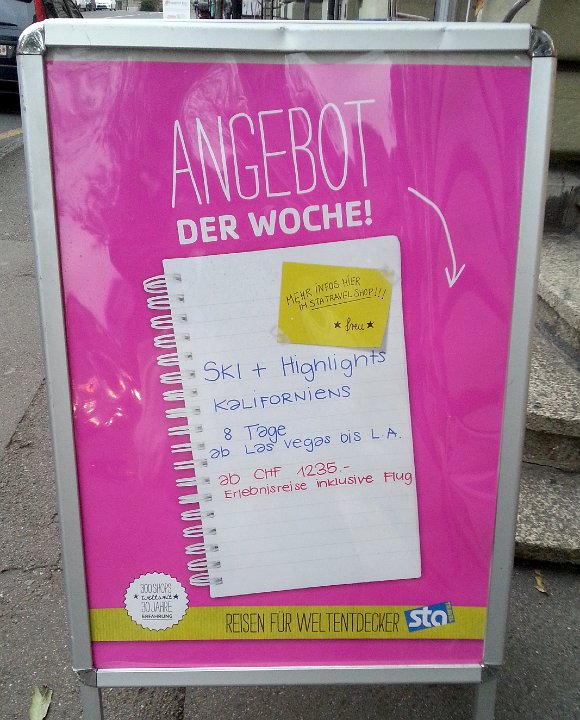 ANGEBOT
DER WOCHE!
MEHR INFOS HIER
IM STA TRAVEL SHOP!!!
★ freu ★
SKI + Highlights
KALIFORNIENS
8 Tage
ab Las Vegas bis L.A.
ab CHF 1235.-
Erlebnisreise inklusive Flug
300 SHOPS
weltweit
30 JAHRE
ERFAHRUNG
REISEN FÜR WELTENTDECKER
sta